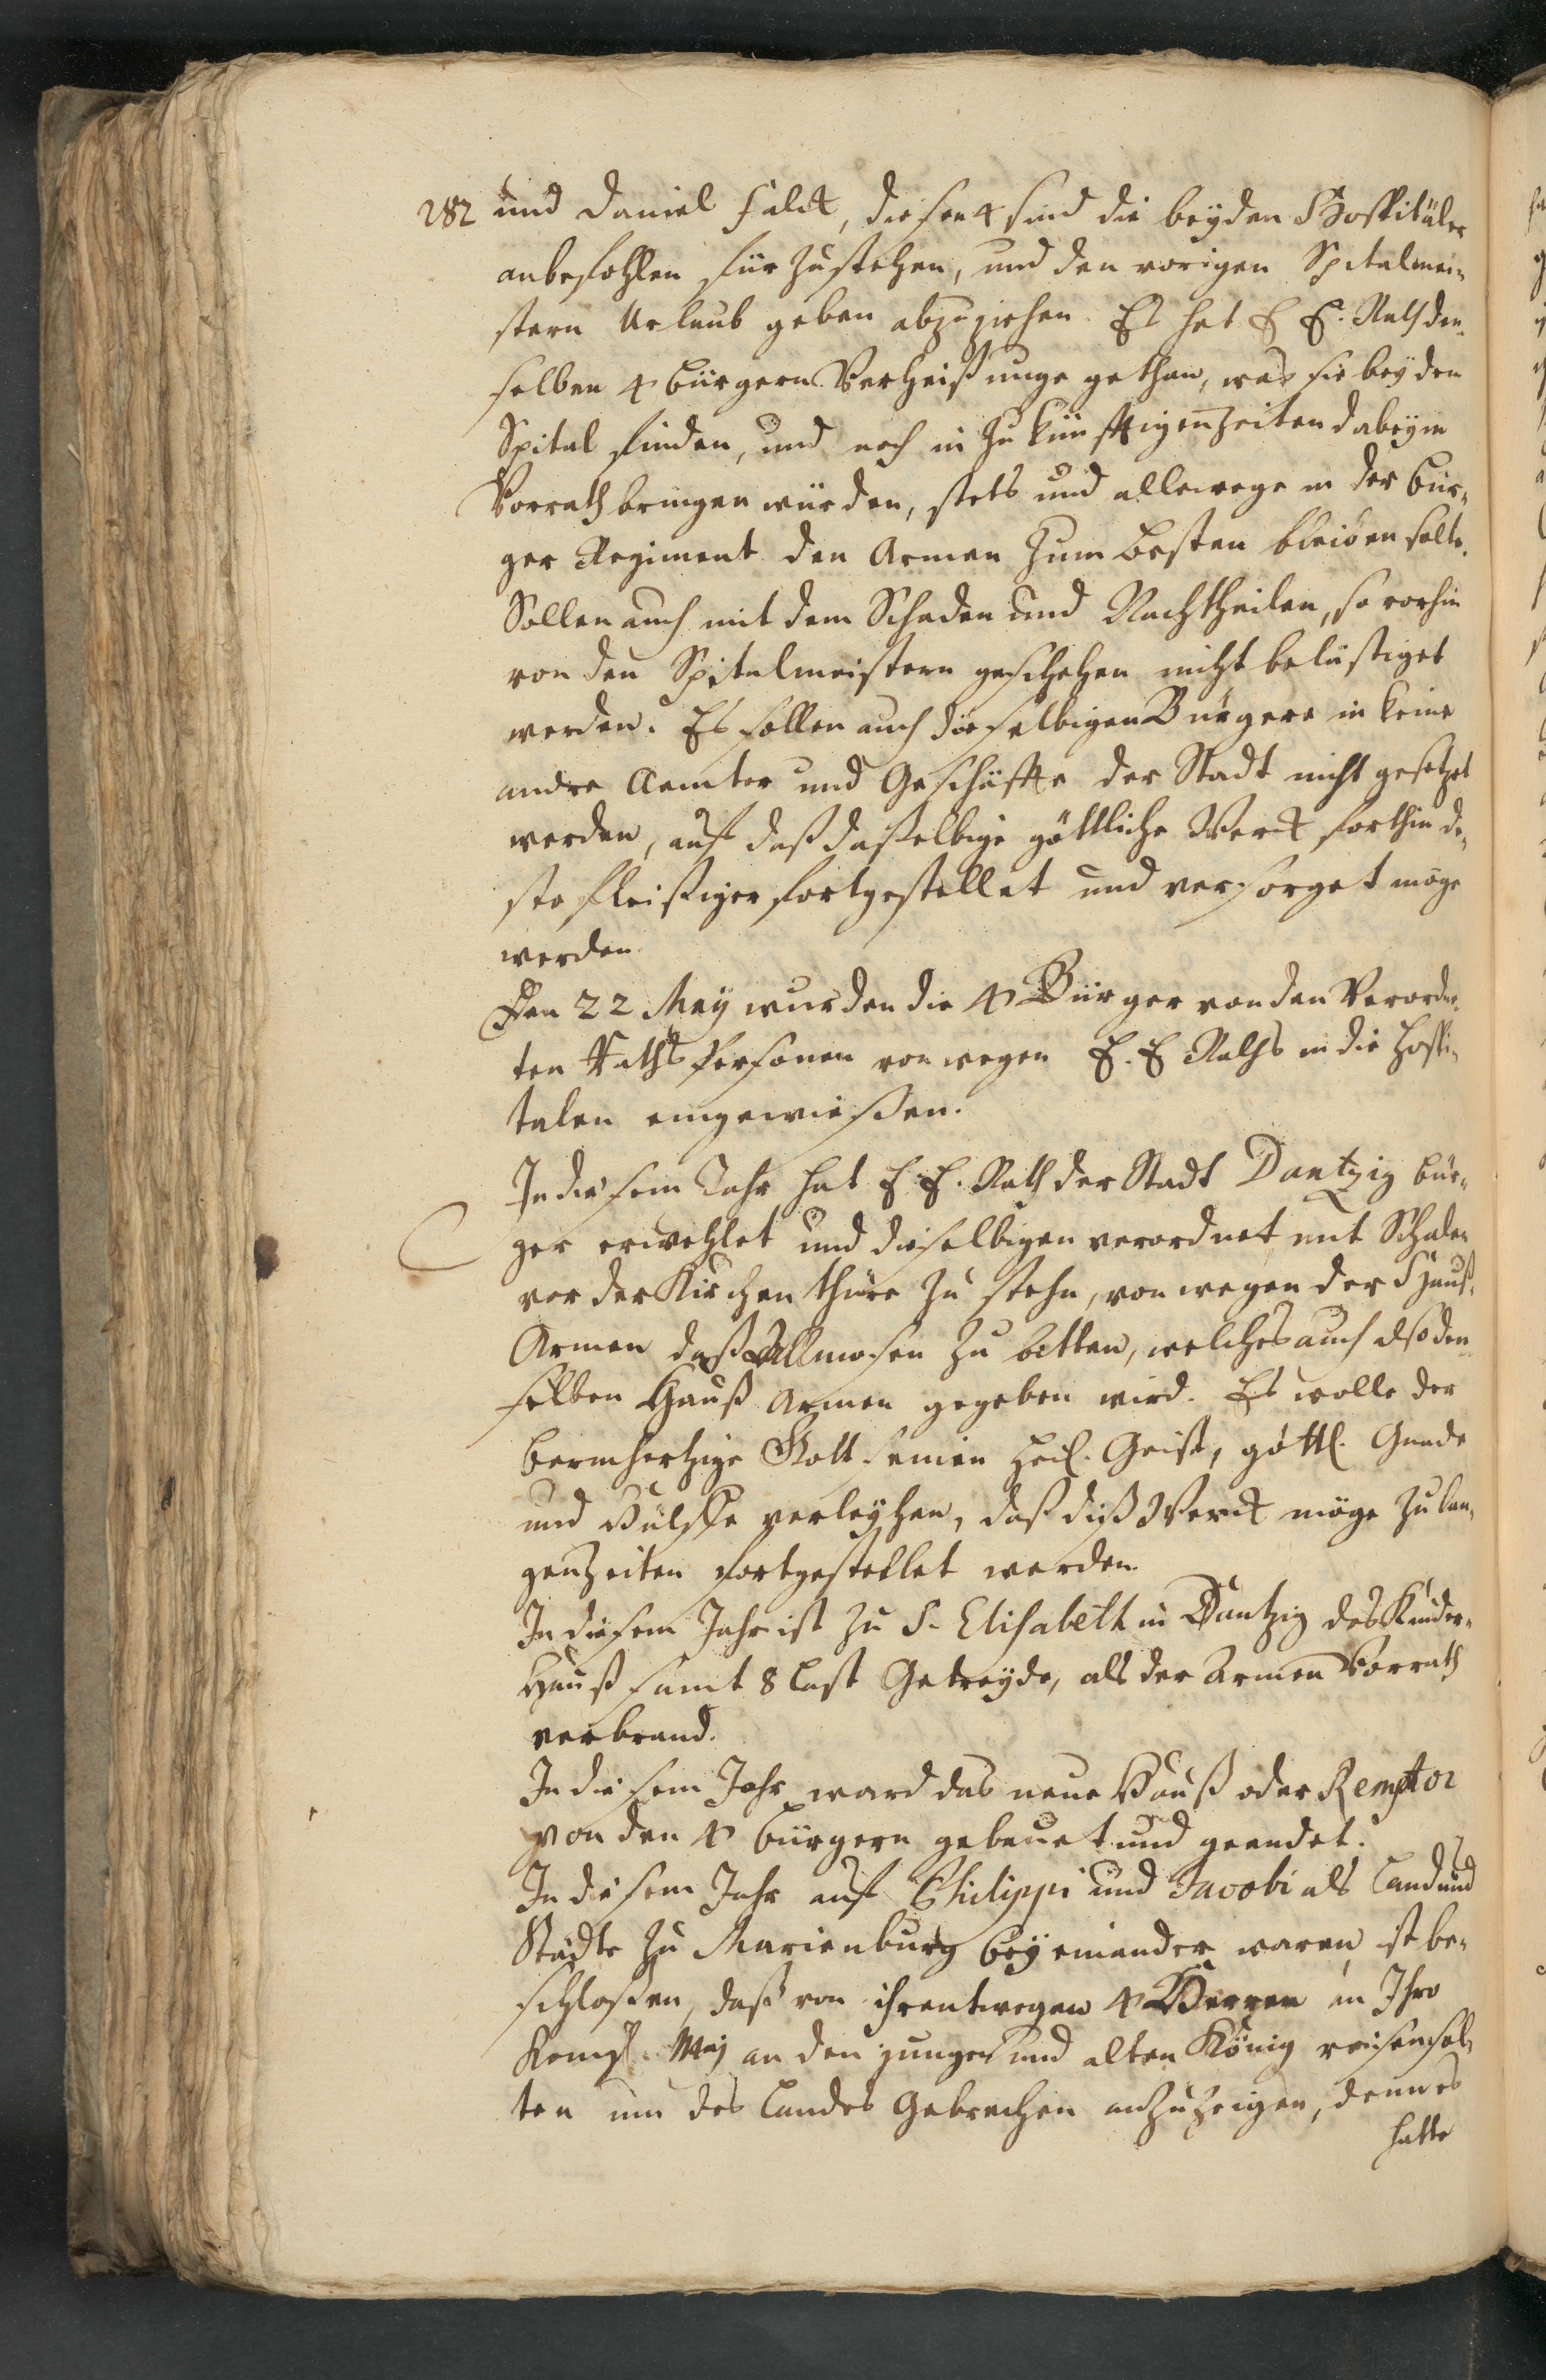 282 und Daniel Falck, diesen 4 sind die beyden Hospitäler
anbefohlen für zustehen, und den vorigen Spitalmei-
stern Urlaub geben abzuziehen. Es hat E E. Rath den-
selben 4 Bürgern Verheißunge gethan, was sie bey dem
Spital finden, und noch in zukünfftigen Zeiten dabey in
Vorrath bringen würden, stets und allewege in der Bür-
ger Regiment den Armen zum besten bleiben solte.
Sollen auch mit dem Schaden und Nachtheilen, so vorhin
von den Spitelmeistern geschehen nicht belästiget
werden. Es sollen auch dieselbigen Bürgere in keine
andre Aemter und Geschäffte der Stadt nicht gesetzet
werden, auf daß daßelbige göttliche Werck forthin de-
sto fleißiger fortgestellet und versorget möge
werden
Den 22 May wurden die 4 Bürger von den Verordne-
ten Raths Personen von wegen E. E Raths in die Hospi-
talen eingewießen.
In diesem Jahr hat E. E. Rath der Stadt Dantzig Bür-
ger erwehlet und dieselbigen verordnet mit Schalen
vor der Kirchen thüre zu stehn, von wegen der Hauß-
Armen daß Allmosen zu bitten, welches auch also den-
selben Hauß Armen gegeben wird. Es wolle der
barmhertzige Gott seinen Heil. Geist, göttl. Gnade
und Hülffe verleyhen, daß diß Werck möge zu lan-
gen Zeiten fortgestellet werden.
In diesem Jahr ist zu S. Elisabeth in Dantzig das Kinder-
Hauß samt 8 Last Getreyde, als der Armen Vorrath
verbrand.
In diesem Jahr ward das neue Hauß oder Remptor
von den 4 Bürgern gebauet und geendet.
In diesem Jahr auf Philippi und Jacobi als Land und
Städte zu Marienburg beyeinander waren, ist be-
schloßen, daß von ihrentwegen 4 Herren an Ihro
Königl. Maj an den jungen und alten König reisen sol-
ten um des Landes Gebrechen anzuzeigen, denn es
hatte